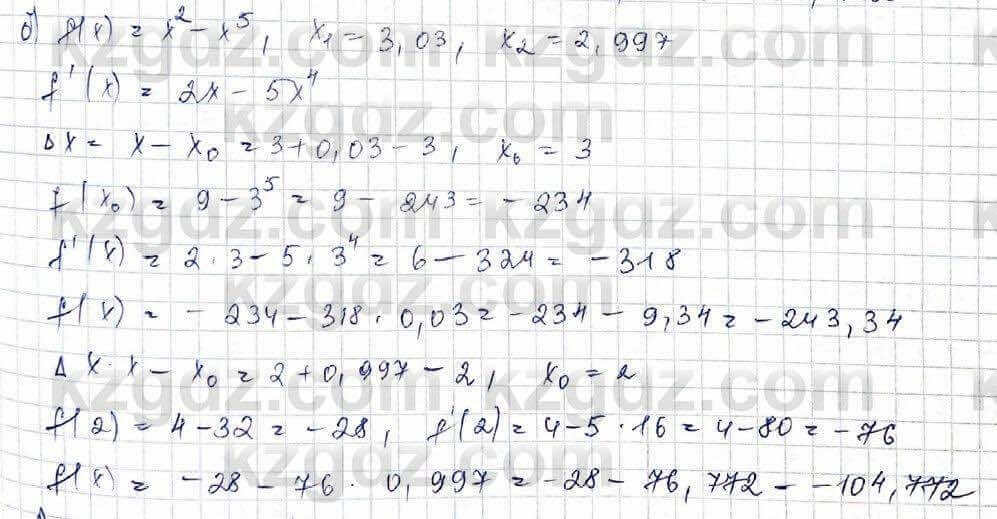 б) f(x) = x² - x⁵, x₁ = 3,03, x₂ = 2,997
f'(x) = 2x - 5x⁴
Δx = x - x₀ = 3 + 0,03 - 3, x₀ = 3
f(x₀) = 9 - 3⁵ = 9 - 243 = - 234
f'(x) = 2 · 3 - 5 · 3⁴ = 6 - 324 = - 318
f(x) = - 234 - 318 · 0,03 = - 234 - 9,34 = - 243,34
Δ x · x - x₀ = 2 + 0,997 - 2, x₀ = 2
f(2) = 4 - 32 = - 28, f'(2) = 4 - 5 · 16 = 4 - 80 = - 76
f(x) = - 28 - 76 · 0,997 = - 28 - 76,772 - - 104,772
kzgdz.com